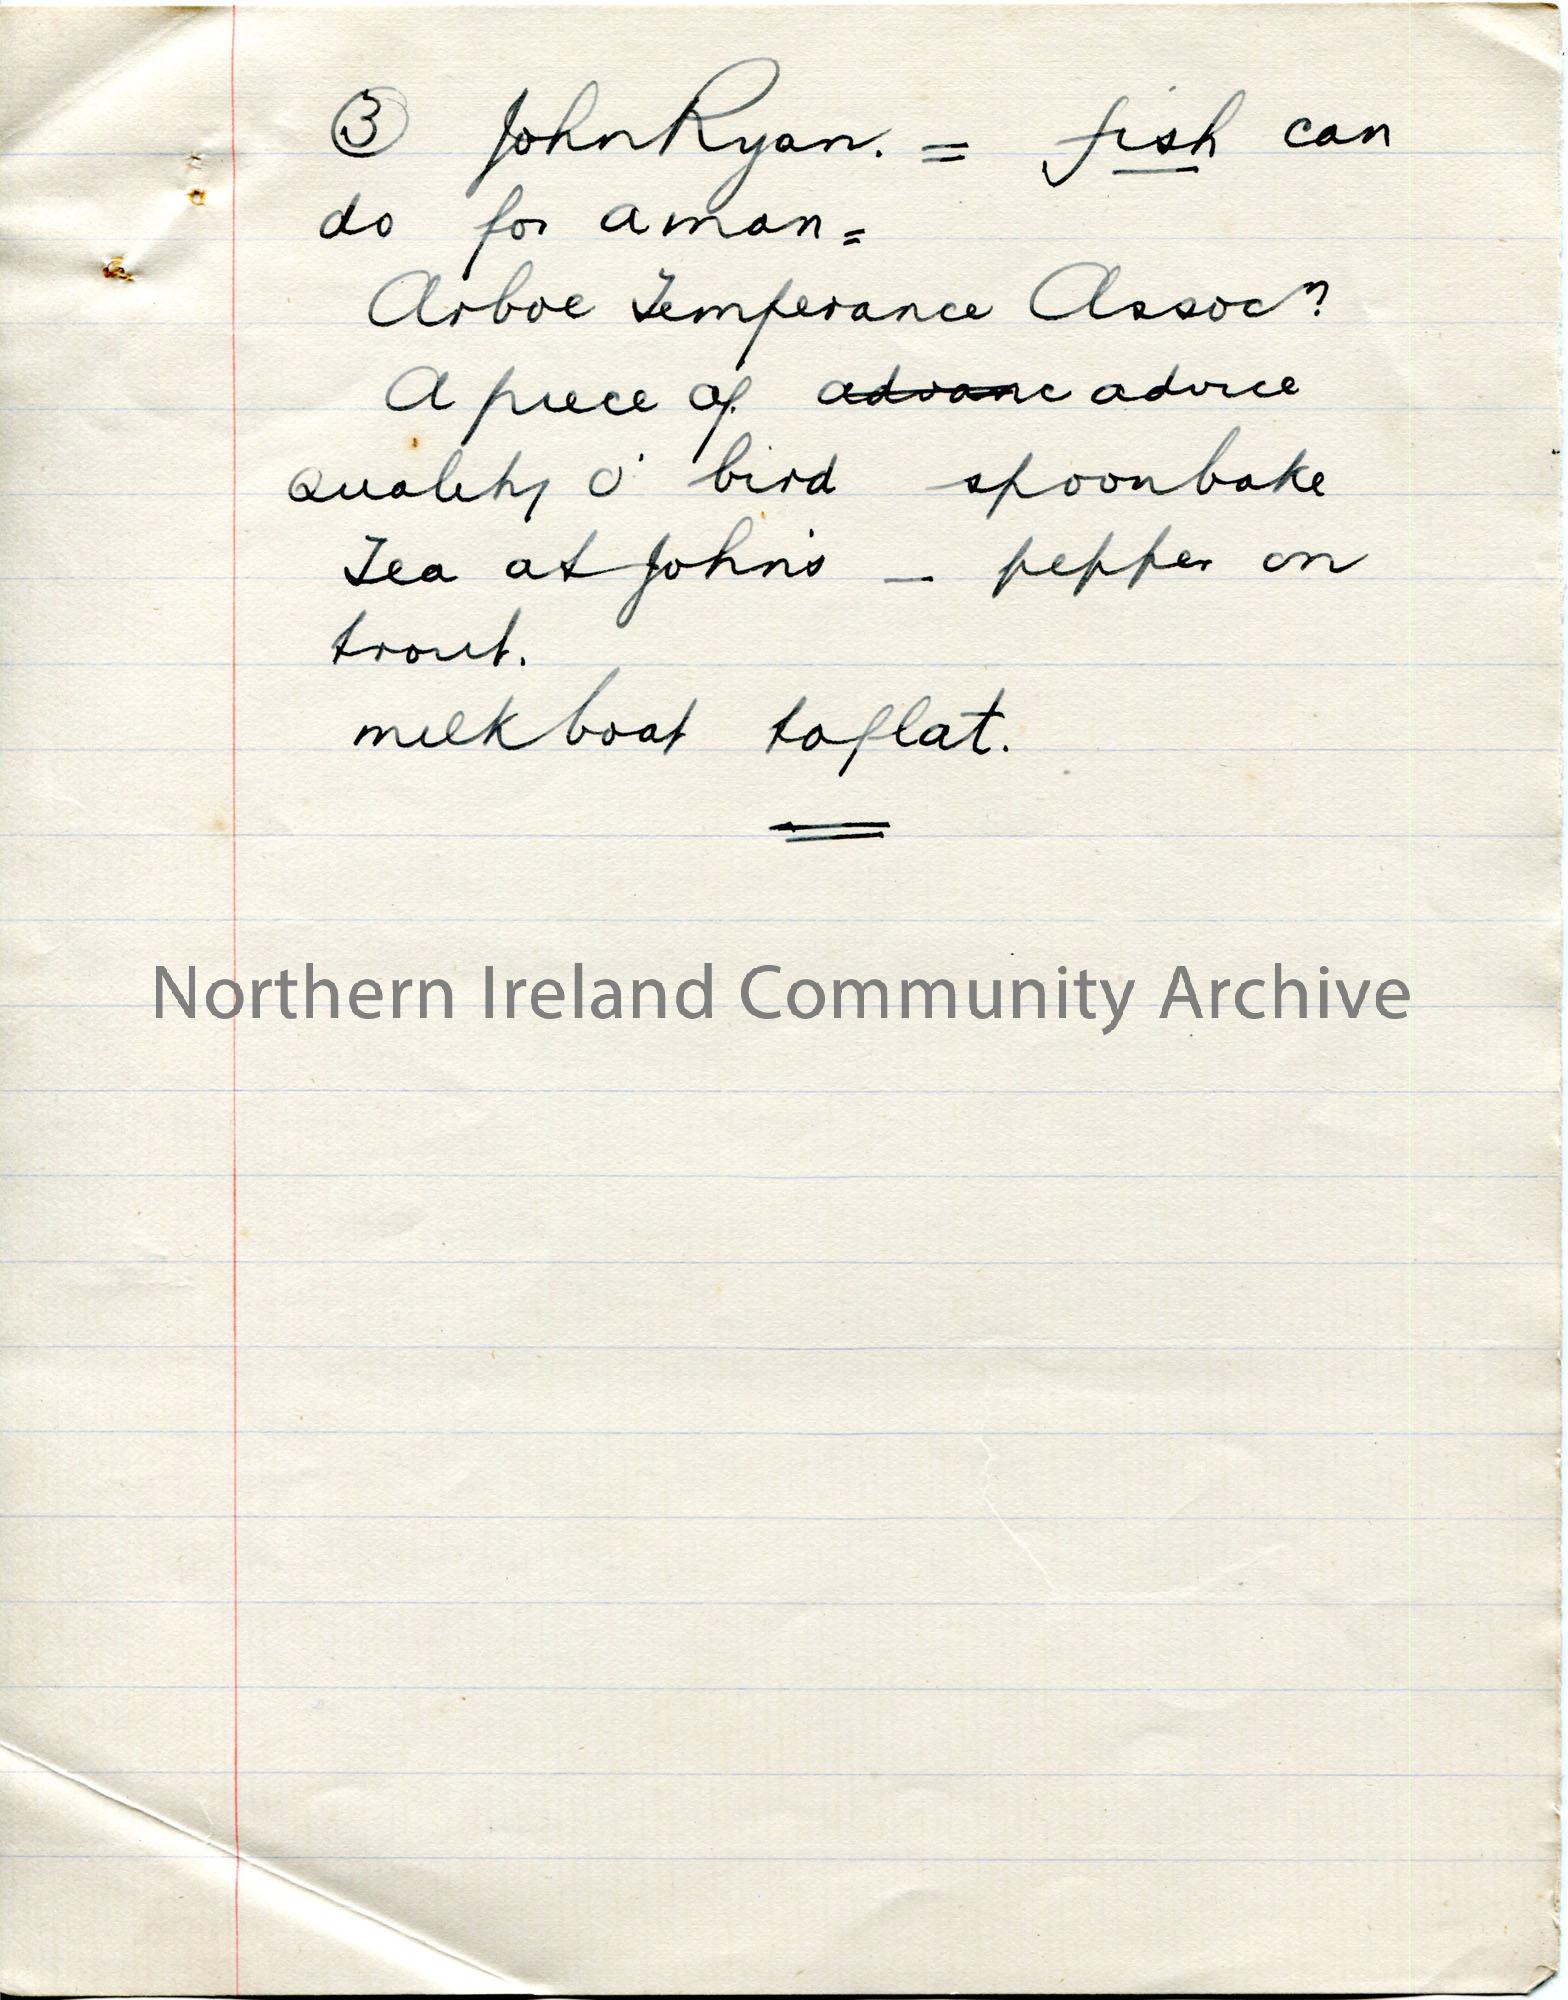 ③ John Ryan. = fish can
do for a man =
Arboe Temperance Assocn
A piece of advanc advice
Quality o' bird spoonbake
Tea at John's – pepper on
trout.
milk boat to flat.
Northern Ireland Community Archive